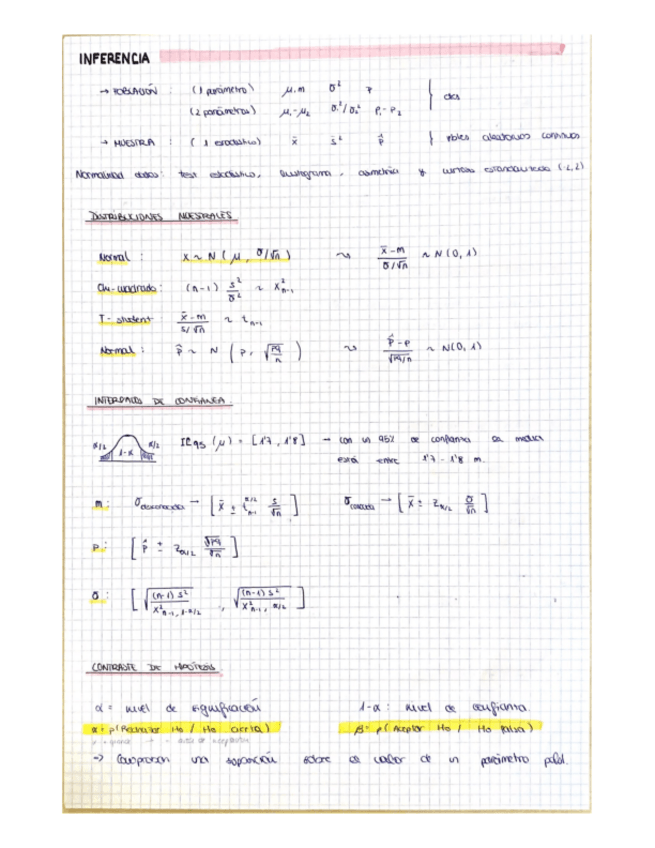 INFERENCIA
→ POBLACIÓN : (1 parámetro) μ, m σ² p } ctes
(2 parámetros) μ₁-μ₂ σ₁²/σ₂² p₁-p₂
→ MUESTRA : (1 estadístico) x̄ s² p̂ } vbles aleatorias continuas
Normalidad datos: test estadístico, histograma, asimetría y curtosis estandarizada (-2,2)
DISTRIBUCIONES MUESTRALES
Normal : x ~ N(μ, σ/√n) ⤳ (x̄-m)/(σ/√n) ~ N(0,1)
Chi-cuadrado: (n-1) s²/σ² ~ X²ₙ₋₁
T-student: (x̄-m)/(s/√n) ~ tₙ₋₁
Normal : p̂ ~ N (p, √(pq/n)) ⤳ (p̂-p)/(√pq/n) ~ N(0,1)
INTERVALOS DE CONFIANZA
α/2 1-α α/2 IC₉₅(μ) = [1'7, 1'8] → con un 95% de confianza la media
está entre 1'7 - 1'8 m.
m: σ desconocida → [x̄ ± t α/2 n-1 s/√n] σ conocida → [x̄ ± z α/2 σ/√n]
p: [p̂ ± z α/2 √pq/√n]
σ: [√((n-1)s²/X²ₙ₋₁, 1-α/2) , √((n-1)s²/X²ₙ₋₁, α/2)]
CONTRASTE DE HIPÓTESIS
α = nivel de significación 1-α : nivel de confianza
α = p(Rechazar H₀ / H₀ cierta) β = p(Aceptar H₀ / H₀ falsa)
→ Comprobar una suposición sobre el valor de un parámetro pobl.